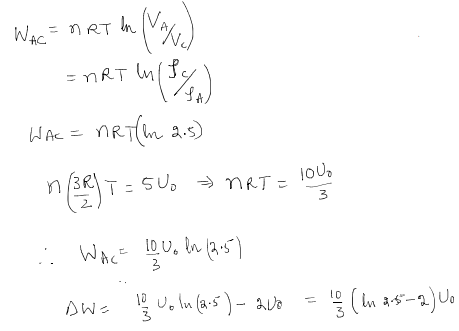 W_AC = nRT ln (V_A/V_C)
= nRT ln (ρ_C/ρ_A)
W_AC = nRT(ln 2.5)
n (3R/2) T = 5U₀ ⇒ nRT = 10U₀/3
∴ W_AC = 10/3 U₀ ln (2.5)
ΔW = 10/3 U₀ ln (2.5) - 2U₀ = 10/3 (ln 2.5 - 2) U₀